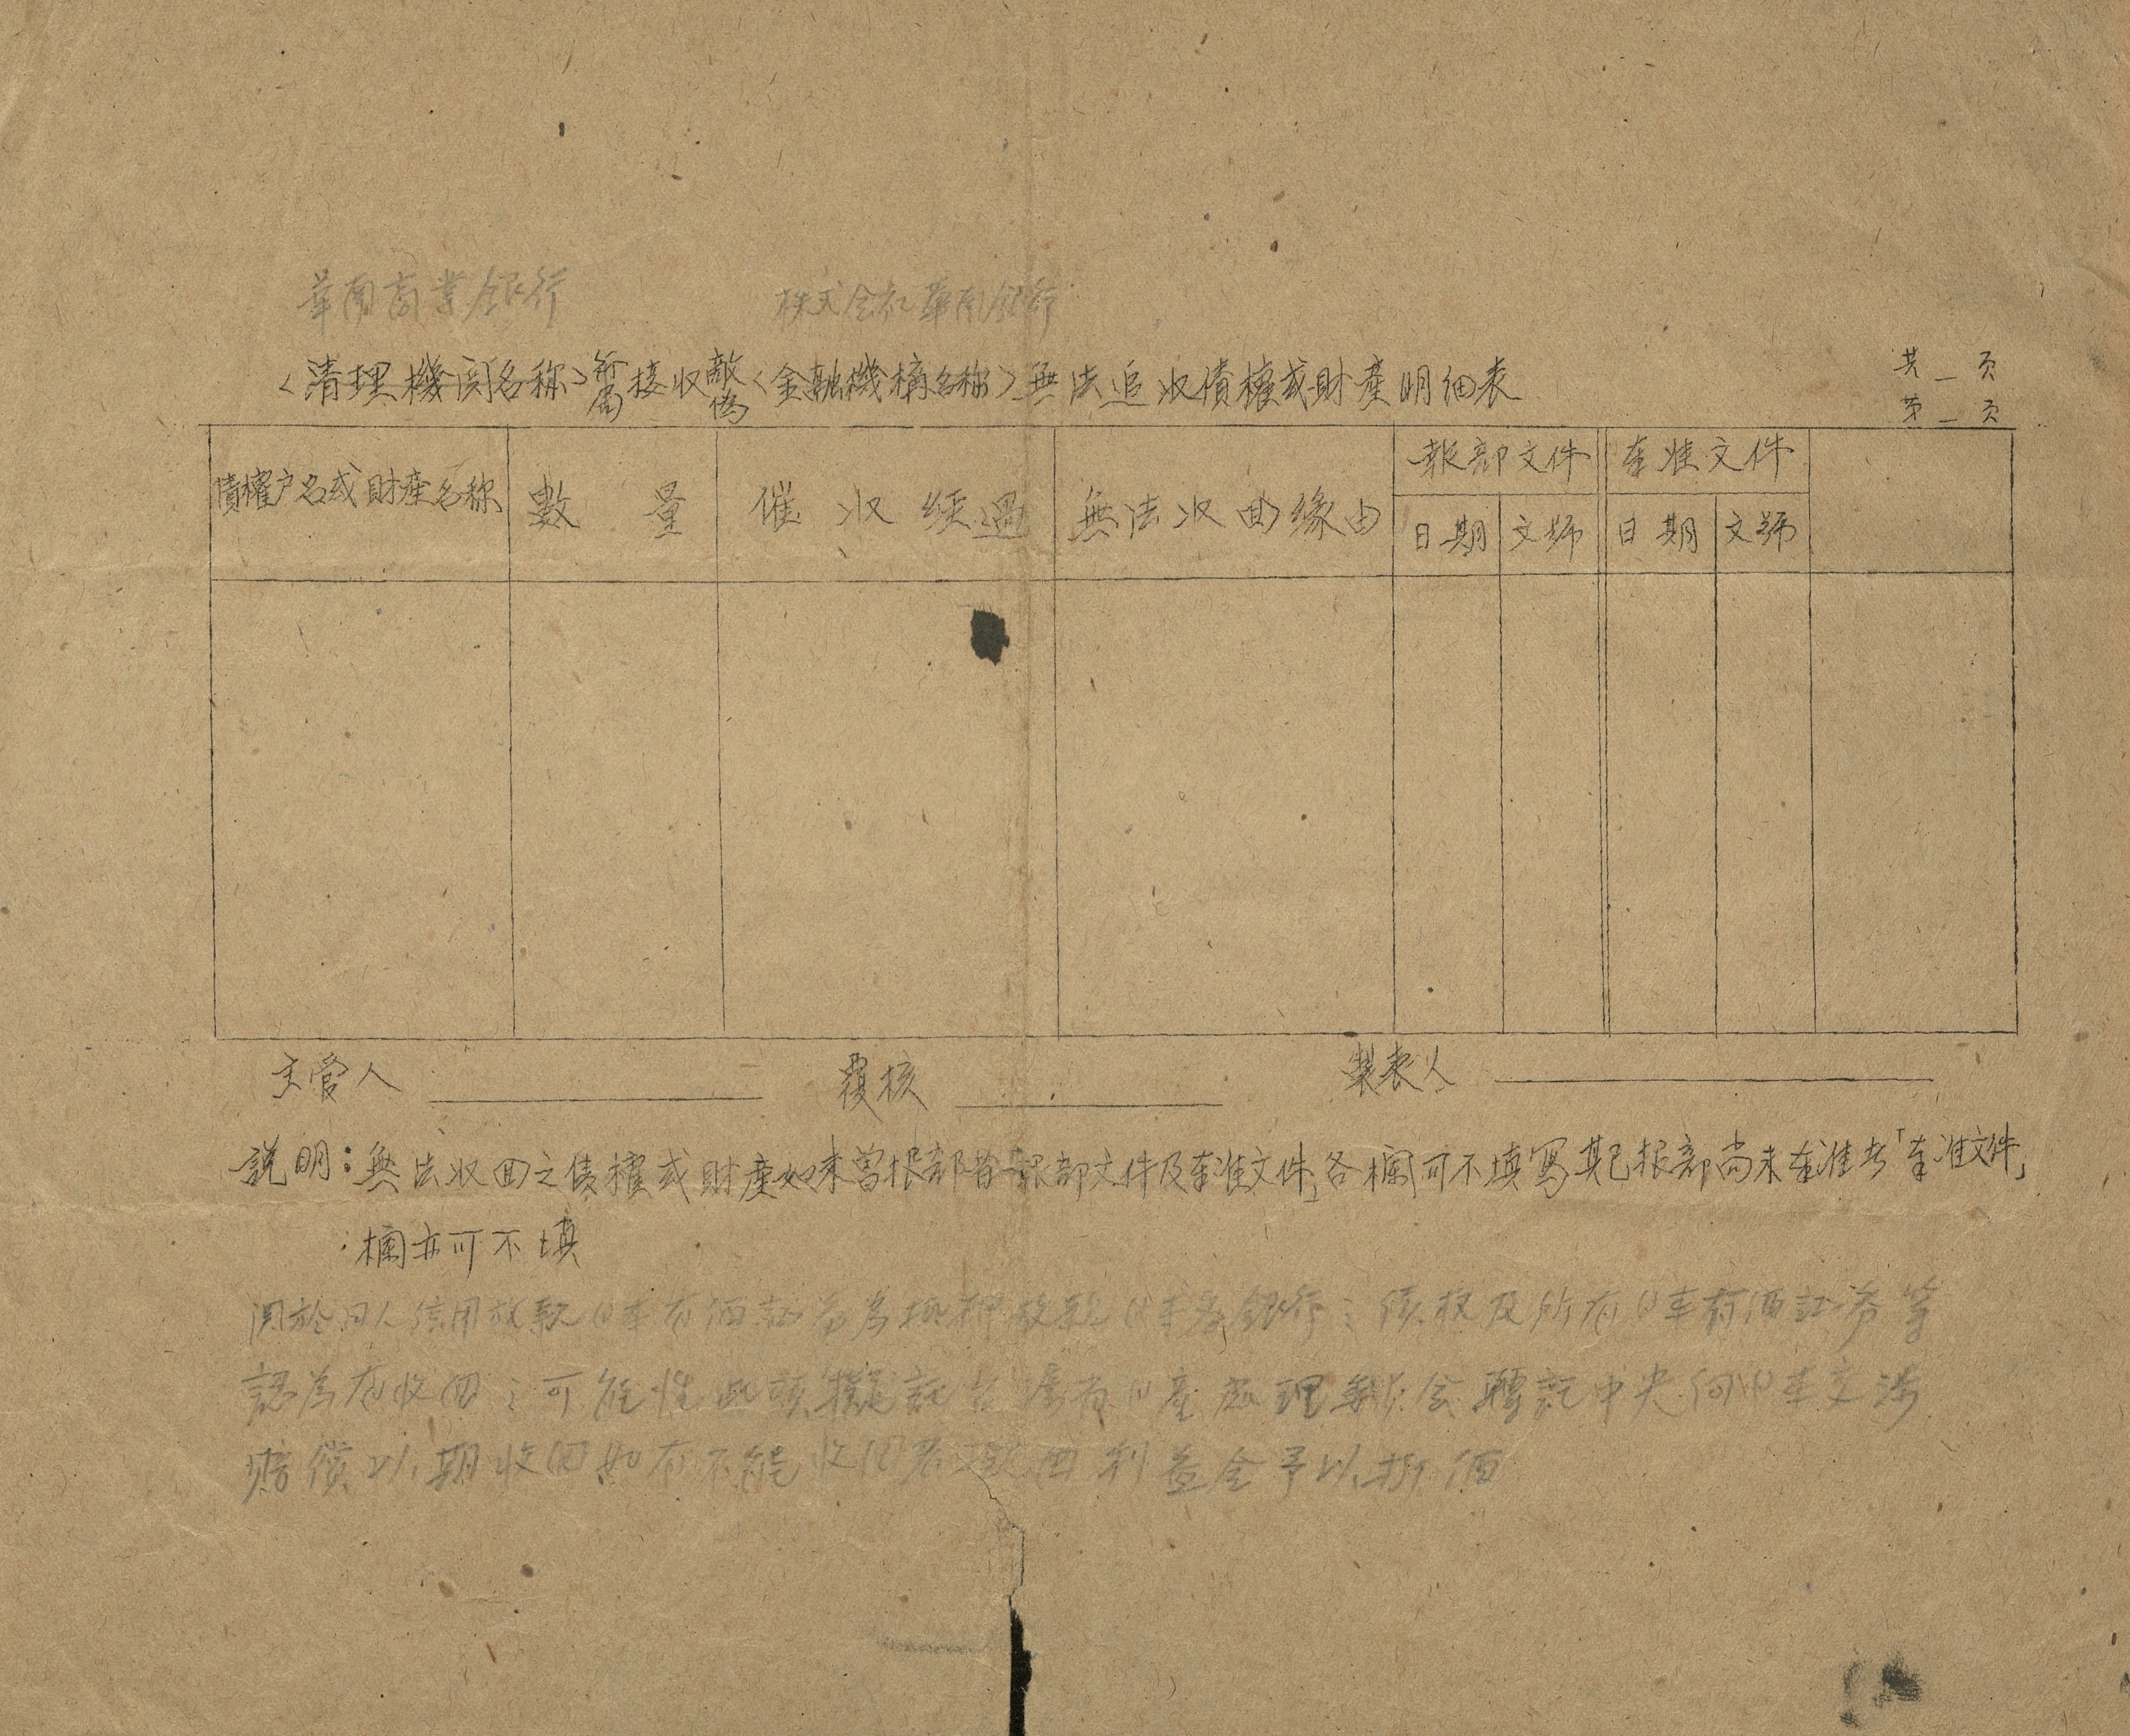 華南商業銀行　株式会社華南銀行
<清理機関名称>所屬接收敵偽<金融機構名称>無法追收債權或財產明細表
共＿頁
第＿頁
債權户名或財產名称　數量　催收經過　無法收回緣由　報部文件　奉准文件
日期　文號　日期　文號
主管人　覆核　製表人
說明：無法收回之債權或財產如未曾报部者「報部文件及奉准文件」各欄可不填寫其已报部尚未奉准者「奉准文件」
欄亦可不填
関於日人信用放款日本有価証券為抵押放款日本各銀行之債权及所有日本有価証券等
認為有收回之可能性此項擬定託台湾省日產處理委員会轉託中央向日本交涉
賠償以期收回如有不能收回者 回利益金予以折価